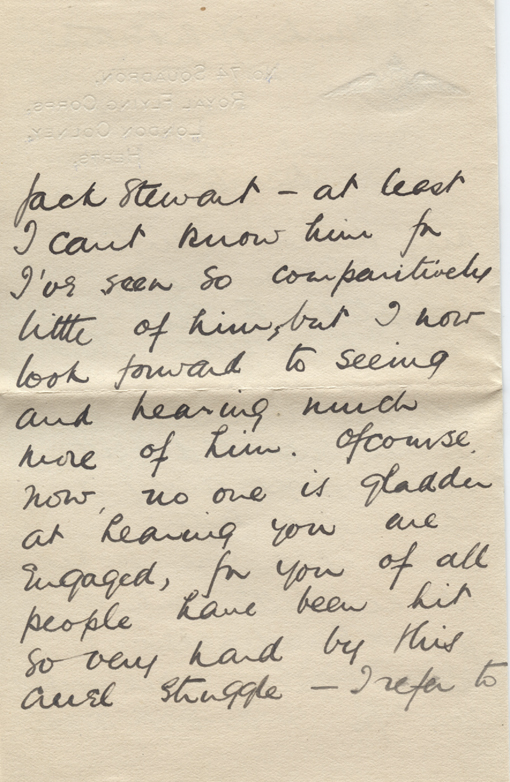 No. 74 Squadron.
Royal Flying Corps.
London Colney,
Herts.
Jack Stewart - at least
I cant know him for
I've seen so comparitively
little of him, but I now
look forward to seeing
and hearing much
more of him. Ofcourse
now, no one is gladder
at hearing you are
Engaged, for you of all
people have been hit
so very hard by this
cruel struggle - I refer to